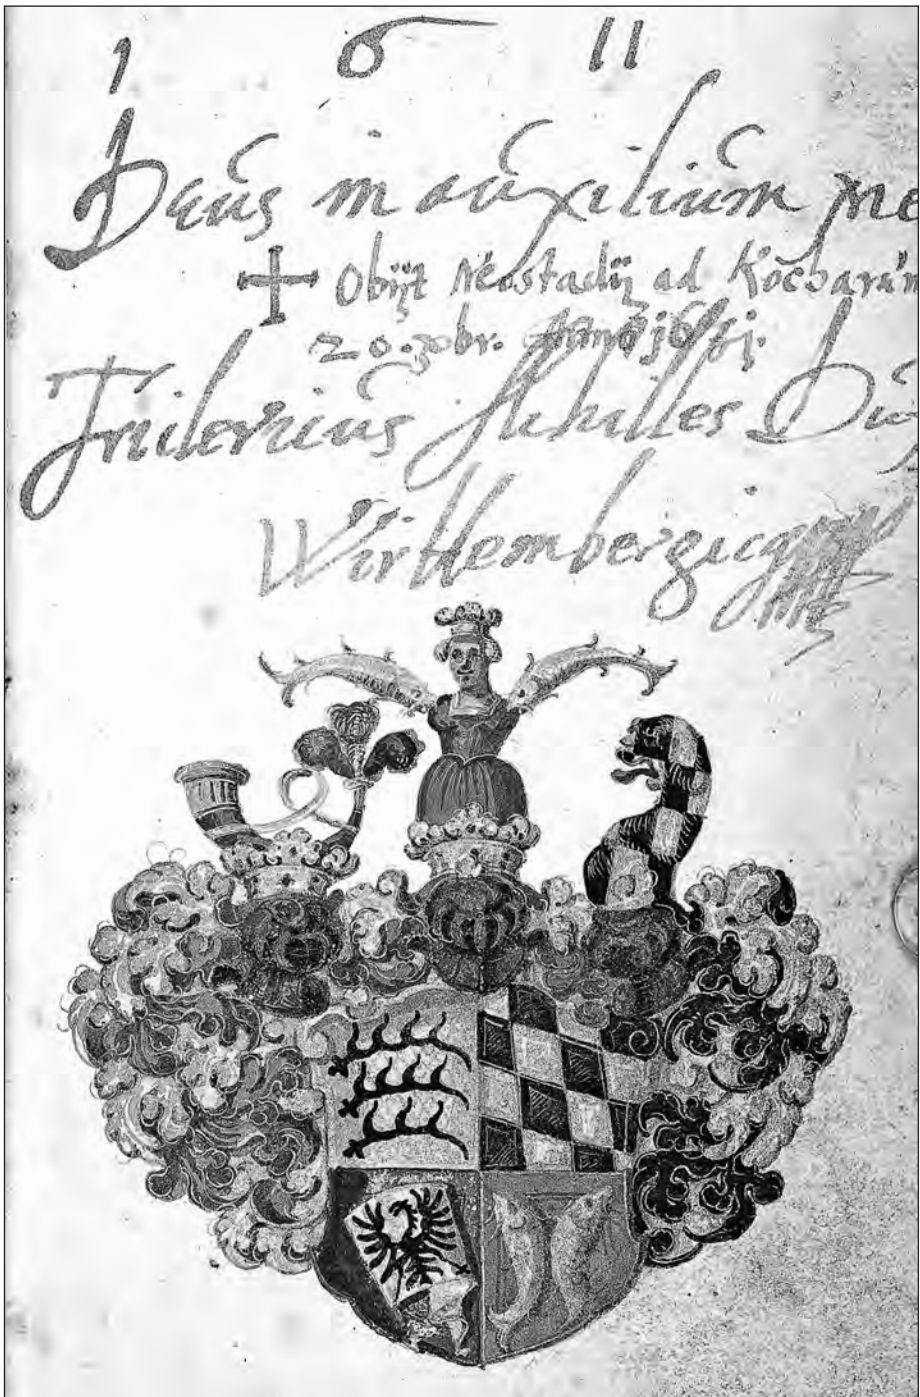 1 6 11
Deus in auxilium me
Obijt Neostadij ad Kocharum
20. Xbr.
Fridericus Achilles Dux
Wirttembergicg